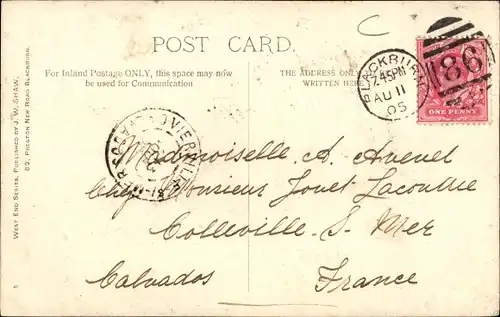 POST CARD.
For Inland Postage ONLY, this space may now
be used for Communication
THE ADDRESS ONLY
WRITTEN HERE.
BLACKBURN
7.45PM
AU 11
05
186
ONE PENNY
WEST END SERIES. PUBLISHED BY J. W. SHAW.
82, PRESTON NEW ROAD BLACKBURN.
C
Mademoiselle A. Avenel
Chez Monsieur Jouet-Lacoutre
Colleville. S. Mer
Calvados France